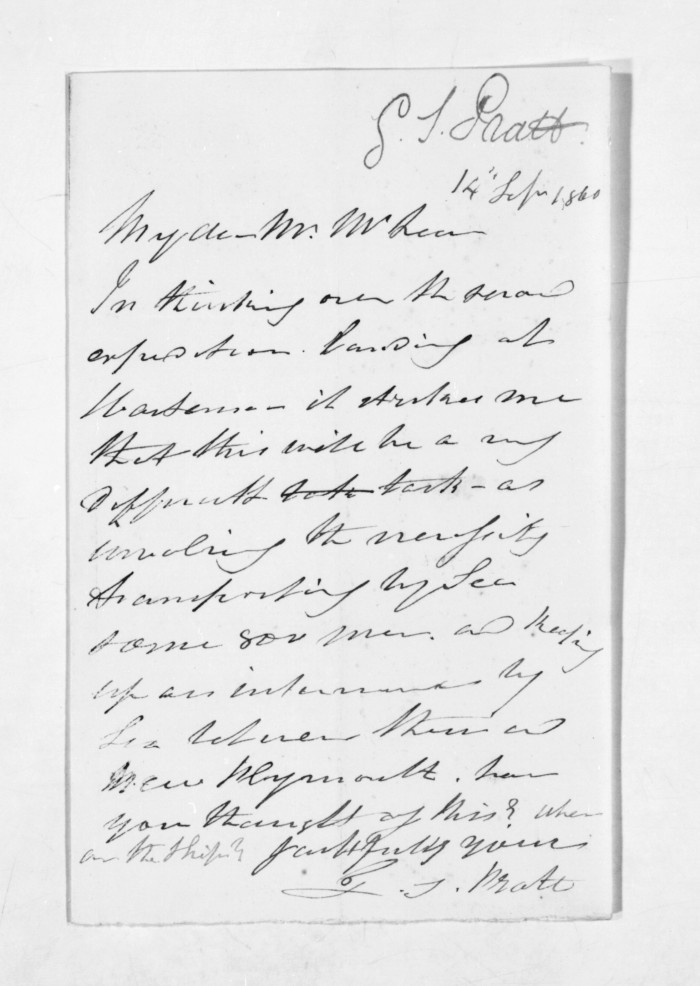 G. S. Pratt.
14" Sepr 1860
My dear Mr. McLean
In thinking over the second
expedition. landing at
it strikes me
that this will be a very
difficult task - as
involving the necessity
transporting by Sea
some 800 men. and keeping
up an intercourse by
Sea between them and
New Plymouth. have
you thought of this? where
are the ships? faithfully yours
G. S. Pratt